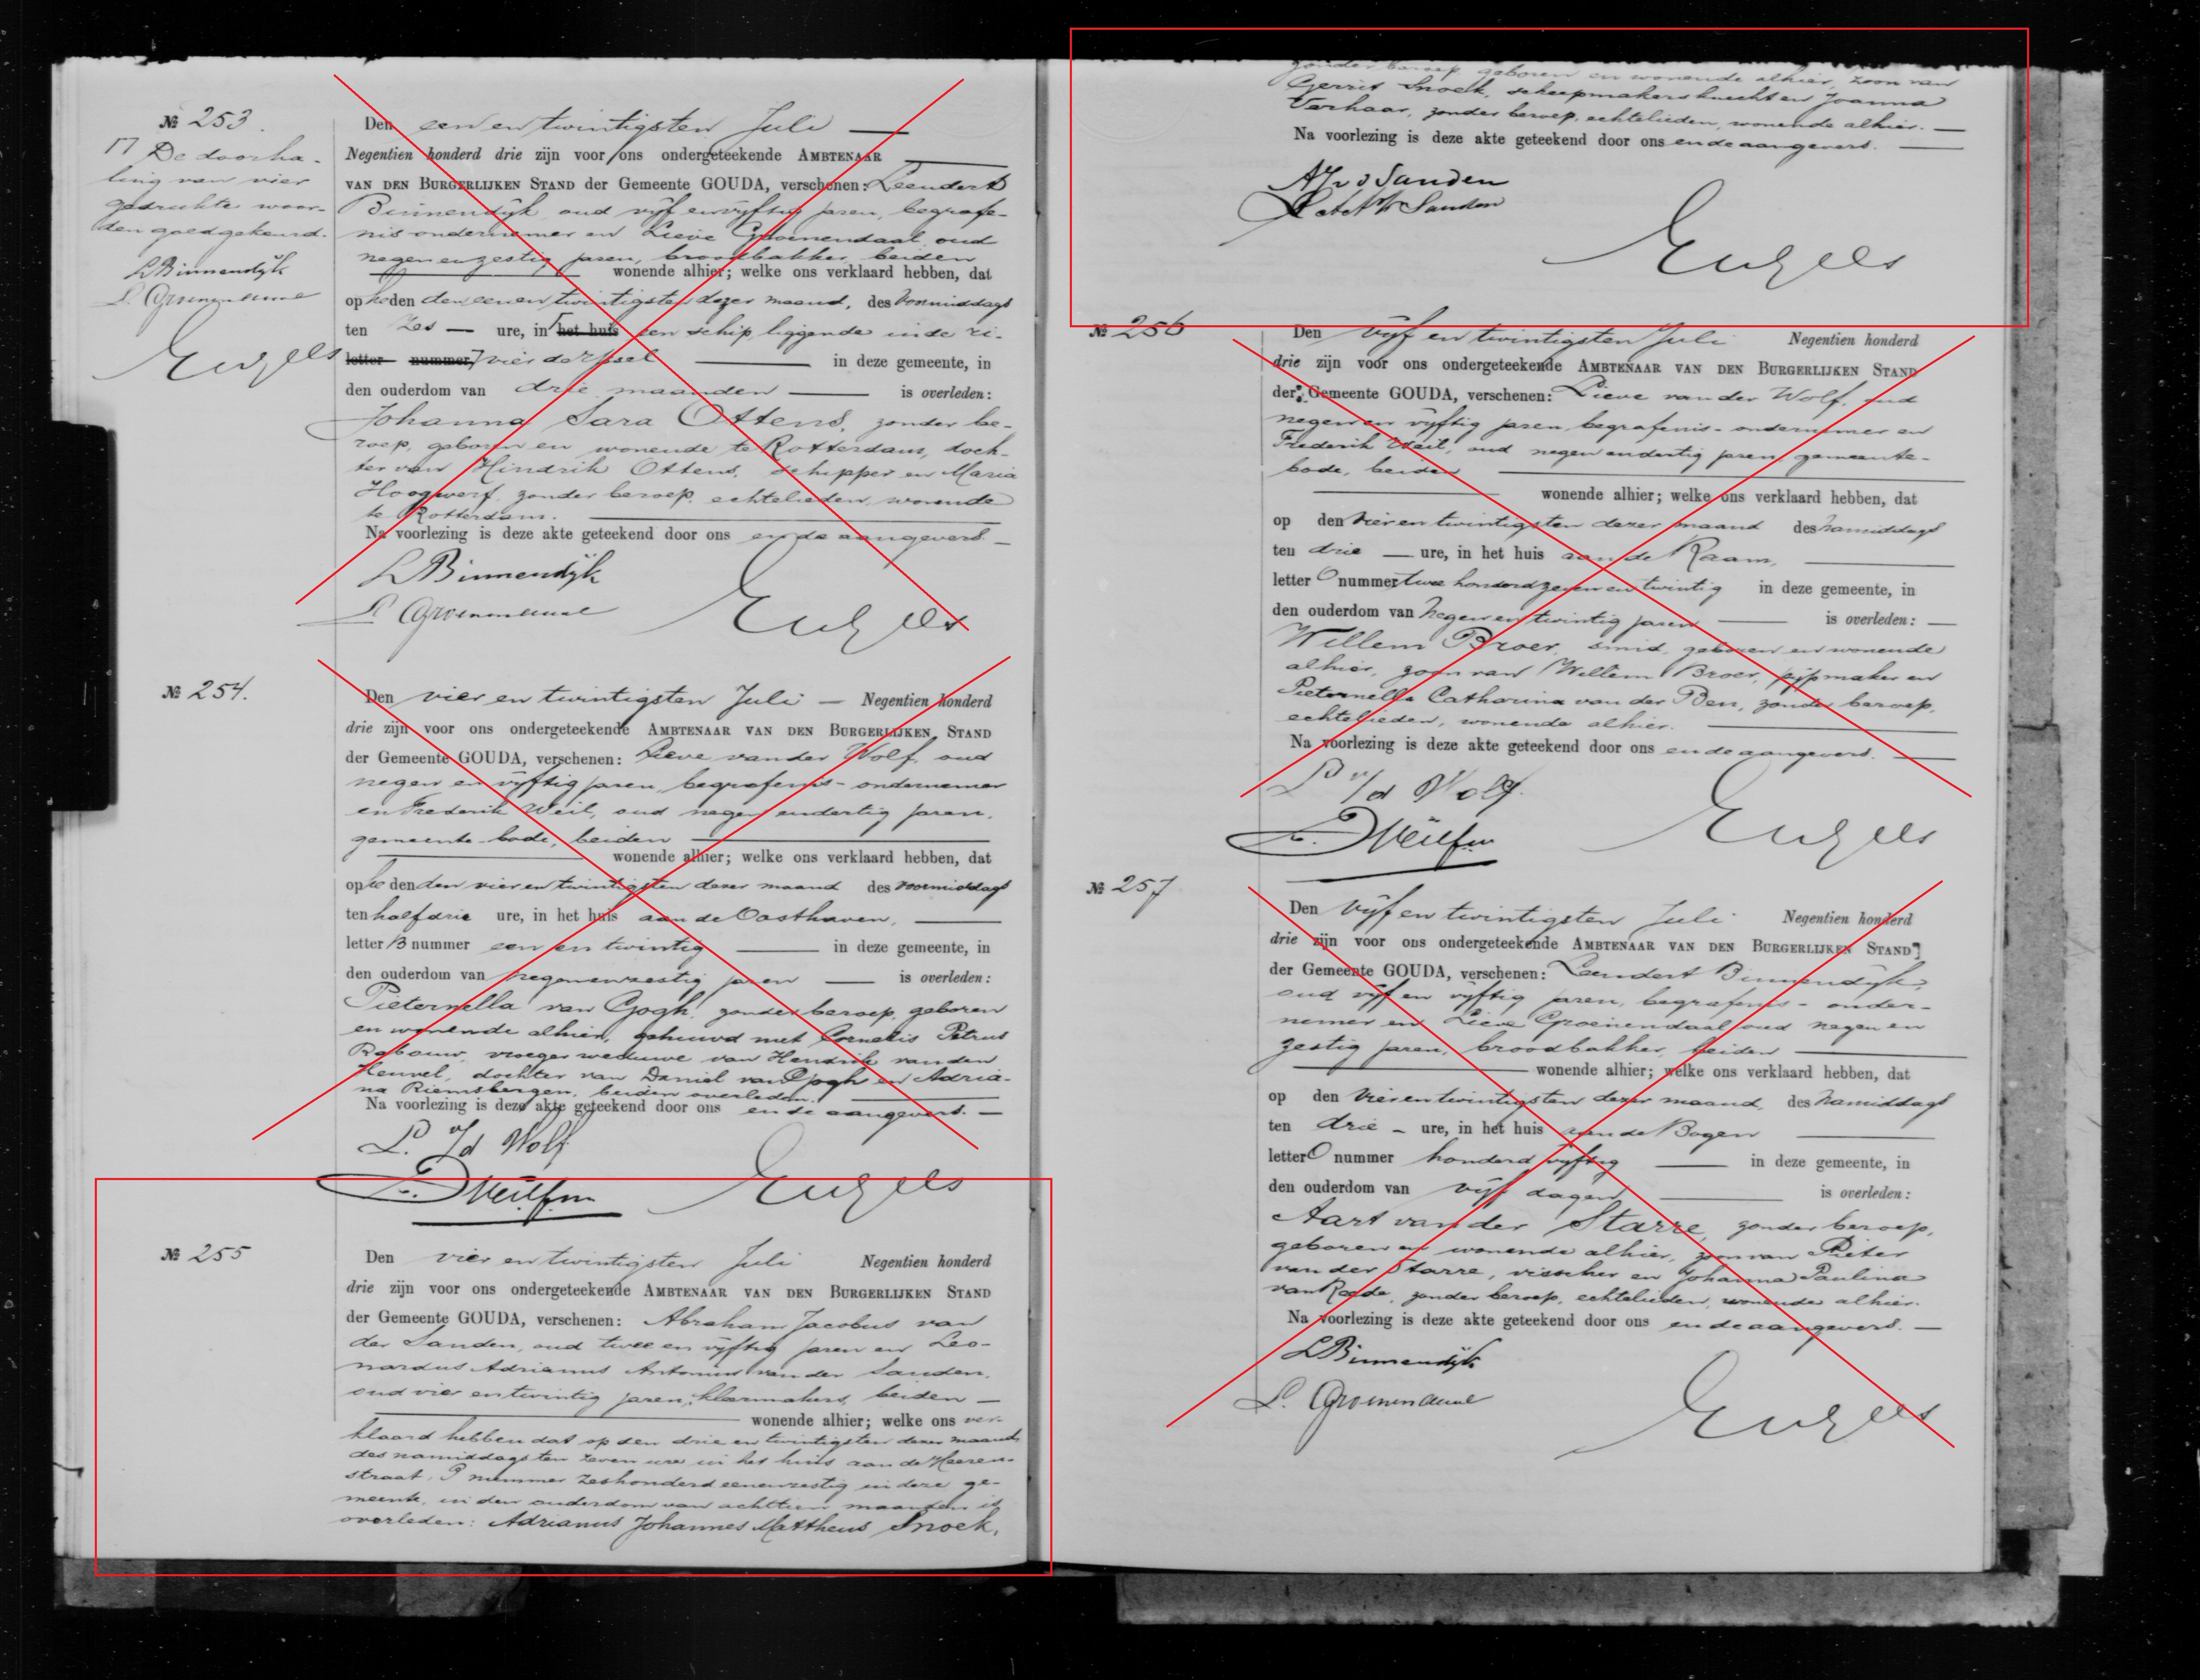 № 253.
Den een en twintigsten Juli
Negentien honderd drie zijn voor ons ondergeteekende AMBTENAAR
VAN DEN BURGERLIJKEN STAND der Gemeente GOUDA, verschenen: Leendert
Binnendijk, oud vijf en vijftig jaren, begrafe-
nis-ondernemer en Lieve Groenendaal, oud
negen en zestig jaren, broodbakker, beiden
wonende alhier; welke ons verklaard hebben, dat
op heden den een en twintigsten dezer maand, des voormiddags
ten zes ure, in het huis een schip, liggende in de ri-
letter nummer vier de IJssel in deze gemeente, in
den ouderdom van drie maanden is overleden:
Johanna Sara Ottens, zonder be-
roep, geboren en wonende te Rotterdam, doch-
ter van Hindrik Ottens, schipper en Maria
Hoogwerf, zonder beroep, echtelieden, wonende
te Rotterdam.
Na voorlezing is deze akte geteekend door ons en de aangevers.
L Binnendijk
L. Groenendaal
Engels
De doorha-
ling van vier
gedrukte woor-
den goedgekeurd.
L Binnendijk
L. Groenendaal
Engels
№ 254.
Den vier en twintigsten Juli Negentien honderd
drie zijn voor ons ondergeteekende AMBTENAAR VAN DEN BURGERLIJKEN STAND
der Gemeente GOUDA, verschenen: Lieve van der Wolf, oud
negen en vijftig jaren, begrafenis-ondernemer
en Frederik Weil, oud negen en dertig jaren,
gemeente-bode, beiden
wonende alhier; welke ons verklaard hebben, dat
op heden den vier en twintigsten dezer maand des voormiddags
ten half drie ure, in het huis aan de Oosthaven,
letter B nummer een en twintig in deze gemeente, in
den ouderdom van negen en zestig jaren is overleden:
Pieternella van Gogh, zonder beroep, geboren
en wonende alhier, gehuwd met Cornelis Petrus
Rabouw, vroeger weduwe van Hendrik van den
Heuvel, dochter van Daniel van Gogh en Adria-
na Riemsbergen, beiden overleden.
Na voorlezing is deze akte geteekend door ons en de aangevers.
L. v/d Wolf
Engels
№ 255
Den vier en twintigsten Juli Negentien honderd
drie zijn voor ons ondergeteekende AMBTENAAR VAN DEN BURGERLIJKEN STAND
der Gemeente GOUDA, verschenen: Abraham Jacobus van
der Sanden, oud twee en vijftig jaren en Leo-
nardus Adrianus Antonius van der Sanden,
oud vier en twintig jaren, kleermakers, beiden
wonende alhier; welke ons ver-
klaard hebben dat op den drie en twintigsten dezer maand
des namiddags ten zeven ure in het huis aan de Heeren-
straat, P nummer zeshonderd een en zestig in deze ge-
meente, in den ouderdom van achttien maanden is
overleden: Adrianus Johannes Mattheus Snoek,
zonder beroep, geboren en wonende alhier, zoon van
Gerrit Snoek, scheepmakersknecht en Joanna
Verhaar, zonder beroep, echtelieden, wonende alhier.
Na voorlezing is deze akte geteekend door ons en de aangevers.
AJ v d Sanden
Sanden
Engels
№ 256
Den vijf en twintigsten Juli Negentien honderd
drie zijn voor ons ondergeteekende AMBTENAAR VAN DEN BURGERLIJKEN STAND
der Gemeente GOUDA, verschenen: Lieve van der Wolf, oud
negen en vijftig jaren, begrafenis-ondernemer en
Frederik Weil, oud negen en dertig jaren, gemeente-
bode, beiden
wonende alhier; welke ons verklaard hebben, dat
op den vier en twintigsten dezer maand des namiddags
ten drie ure, in het huis aan de Raam,
letter O nummer twee honderd zeven en twintig in deze gemeente, in
den ouderdom van negen en twintig jaren is overleden:
Willem Broer, smid, geboren en wonende
alhier, zoon van Willem Broer, pijpmaker en
Pieternella Catharina van der Ben, zonder beroep,
echtelieden, wonende alhier.
Na voorlezing is deze akte geteekend door ons en de aangevers.
L v/d Wolf.
Engels
№ 257
Den vijf en twintigsten Juli Negentien honderd
drie zijn voor ons ondergeteekende AMBTENAAR VAN DEN BURGERLIJKEN STAND
der Gemeente GOUDA, verschenen: Leendert Binnendijk,
oud vijf en vijftig jaren, begrafenis-onder-
nemer en Lieve Groenendaal oud negen en
zestig jaren, broodbakker, beiden
wonende alhier; welke ons verklaard hebben, dat
op den vier en twintigsten dezer maand, des namiddags
ten drie ure, in het huis aan de Bogen
letter O nummer honderd vijftig in deze gemeente, in
den ouderdom van vijf dagen is overleden:
Aart van der Starre, zonder beroep,
geboren en wonende alhier, zoon van Pieter
van der Starre, visscher en Johanna Paulina
van Rede, zonder beroep, echtelieden, wonende alhier.
Na voorlezing is deze akte geteekend door ons en de aangevers.
L Binnendijk
L. Groenendaal
Engels